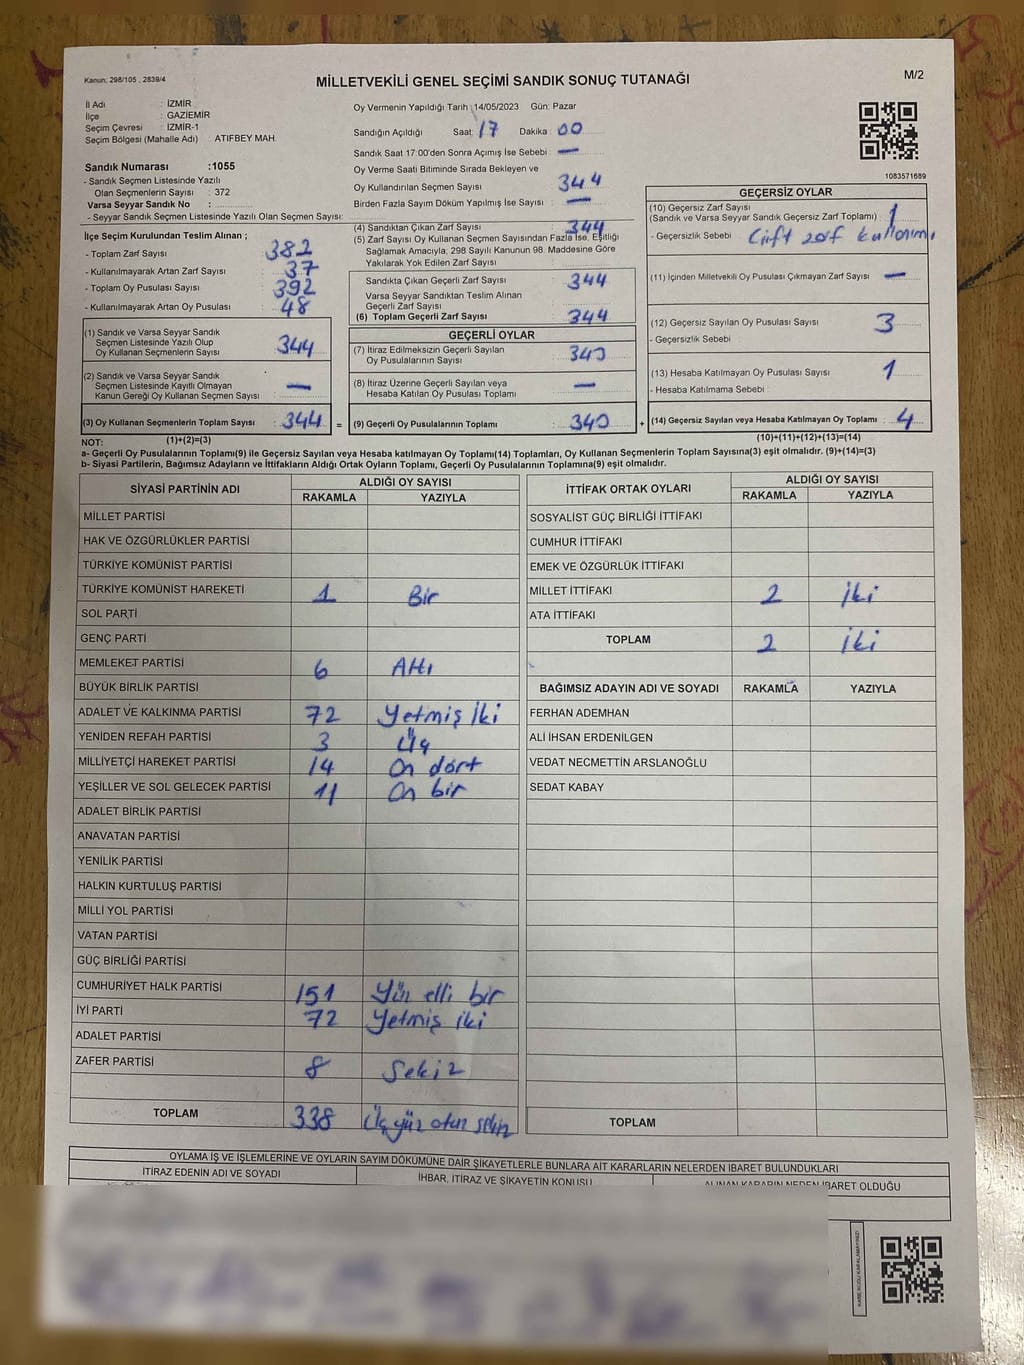 Kanun: 298/105 , 2839/4
MİLLETVEKİLİ GENEL SEÇİMİ SANDIK SONUÇ TUTANAĞI
M/2
İl Adı : İZMİR
İlçe : GAZİEMİR
Seçim Çevresi : İZMİR-1
Seçim Bölgesi (Mahalle Adı) : ATIFBEY MAH.
Sandık Numarası :1055
- Sandık Seçmen Listesinde Yazılı
Olan Seçmenlerin Sayısı : 372
Varsa Seyyar Sandık No :
- Seyyar Sandık Seçmen Listesinde Yazılı Olan Seçmen Sayısı:
Oy Vermenin Yapıldığı Tarih :14/05/2023 Gün: Pazar
Sandığın Açıldığı Saat: 17 Dakika : 00
Sandık Saat 17:00'den Sonra Açımış İse Sebebi : —
Oy Verme Saati Bitiminde Sırada Bekleyen ve
Oy Kullandırılan Seçmen Sayısı : 344
Birden Fazla Sayım Döküm Yapılmış İse Sayısı : —
1083571689
İlçe Seçim Kurulundan Teslim Alınan ;
- Toplam Zarf Sayısı : 382
- Kullanılmayarak Artan Zarf Sayısı : 37
- Toplam Oy Pusulası Sayısı : 392
- Kullanılmayarak Artan Oy Pusulası : 48
(1) Sandık ve Varsa Seyyar Sandık
Seçmen Listesinde Yazılı Olup
Oy Kullanan Seçmenlerin Sayısı : 344
(2) Sandık ve Varsa Seyyar Sandık
Seçmen Listesinde Kayıtlı Olmayan
Kanun Gereği Oy Kullanan Seçmen Sayısı : —
(3) Oy Kullanan Seçmenlerin Toplam Sayısı : 344 =
(4) Sandıktan Çıkan Zarf Sayısı : 344
(5) Zarf Sayısı Oy Kullanan Seçmen Sayısından Fazla İse, Eşitliği
Sağlamak Amacıyla, 298 Sayılı Kanunun 98. Maddesine Göre
Yakılarak Yok Edilen Zarf Sayısı :
Sandıkta Çıkan Geçerli Zarf Sayısı : 344
Varsa Seyyar Sandıktan Teslim Alınan
Geçerli Zarf Sayısı :
(6) Toplam Geçerli Zarf Sayısı : 344
GEÇERLİ OYLAR
(7) İtiraz Edilmeksizin Geçerli Sayılan
Oy Pusulalarının Sayısı : 340
(8) İtiraz Üzerine Geçerli Sayılan veya
Hesaba Katılan Oy Pusulası Toplamı : —
(9) Geçerli Oy Pusulalarının Toplamı : 340 +
GEÇERSİZ OYLAR
(10) Geçersiz Zarf Sayısı
(Sandık ve Varsa Seyyar Sandık Geçersiz Zarf Toplamı) : 1
- Geçersizlik Sebebi : Çift zarf kullanımı
(11) İçinden Milletvekili Oy Pusulası Çıkmayan Zarf Sayısı : —
(12) Geçersiz Sayılan Oy Pusulası Sayısı : 3
- Geçersizlik Sebebi :
(13) Hesaba Katılmayan Oy Pusulası Sayısı : 1
- Hesaba Katılmama Sebebi :
(14) Geçersiz Sayılan veya Hesaba Katılmayan Oy Toplamı : 4
NOT: (1)+(2)=(3) (10)+(11)+(12)+(13)=(14)
a- Geçerli Oy Pusulalarının Toplamı(9) ile Geçersiz Sayılan veya Hesaba katılmayan Oy Toplamı(14) Toplamları, Oy Kullanan Seçmenlerin Toplam Sayısına(3) eşit olmalıdır. (9)+(14)=(3)
b- Siyasi Partilerin, Bağımsız Adayların ve İttifakların Aldığı Ortak Oyların Toplamı, Geçerli Oy Pusulalarının Toplamına(9) eşit olmalıdır.
SİYASİ PARTİNİN ADI ALDIĞI OY SAYISI
RAKAMLA YAZIYLA
MİLLET PARTİSİ
HAK VE ÖZGÜRLÜKLER PARTİSİ
TÜRKİYE KOMÜNİST PARTİSİ
TÜRKİYE KOMÜNİST HAREKETİ 1 Bir
SOL PARTİ
GENÇ PARTİ
MEMLEKET PARTİSİ 6 Altı
BÜYÜK BİRLİK PARTİSİ
ADALET VE KALKINMA PARTİSİ 72 Yetmiş iki
YENİDEN REFAH PARTİSİ 3 Üç
MİLLİYETÇİ HAREKET PARTİSİ 14 On dört
YEŞİLLER VE SOL GELECEK PARTİSİ 11 On bir
ADALET BİRLİK PARTİSİ
ANAVATAN PARTİSİ
YENİLİK PARTİSİ
HALKIN KURTULUŞ PARTİSİ
MİLLİ YOL PARTİSİ
VATAN PARTİSİ
GÜÇ BİRLİĞİ PARTİSİ
CUMHURİYET HALK PARTİSİ 151 Yüz elli bir
İYİ PARTİ 72 Yetmiş iki
ADALET PARTİSİ
ZAFER PARTİSİ 8 Sekiz
TOPLAM 338 Üç yüz otuz sekiz
İTTİFAK ORTAK OYLARI ALDIĞI OY SAYISI
RAKAMLA YAZIYLA
SOSYALİST GÜÇ BİRLİĞİ İTTİFAKI
CUMHUR İTTİFAKI
EMEK VE ÖZGÜRLÜK İTTİFAKI
MİLLET İTTİFAKI 2 İki
ATA İTTİFAKI
TOPLAM 2 İki
BAĞIMSIZ ADAYIN ADI VE SOYADI RAKAMLA YAZIYLA
FERHAN ADEMHAN
ALİ İHSAN ERDENİLGEN
VEDAT NECMETTİN ARSLANOĞLU
SEDAT KABAY
TOPLAM
OYLAMA İŞ VE İŞLEMLERİNE VE OYLARIN SAYIM DÖKÜMÜNE DAİR ŞİKAYETLERLE BUNLARA AİT KARARLARIN NELERDEN İBARET BULUNDUKLARI
İTİRAZ EDENİN ADI VE SOYADI İHBAR, İTİRAZ VE ŞİKAYETİN KONUSU ALINAN KARARIN NEDEN İBARET OLDUĞU